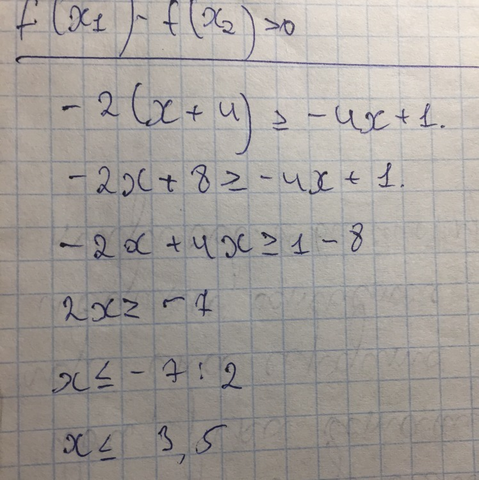 f(x1) - f(x2) > 0
- 2(x + 4) ≥ - 4x + 1.
- 2x + 8 ≥ - 4x + 1.
- 2x + 4x ≥ 1 - 8
2x ≥ - 7
x ≤ - 7 : 2
x ≤ 3,5